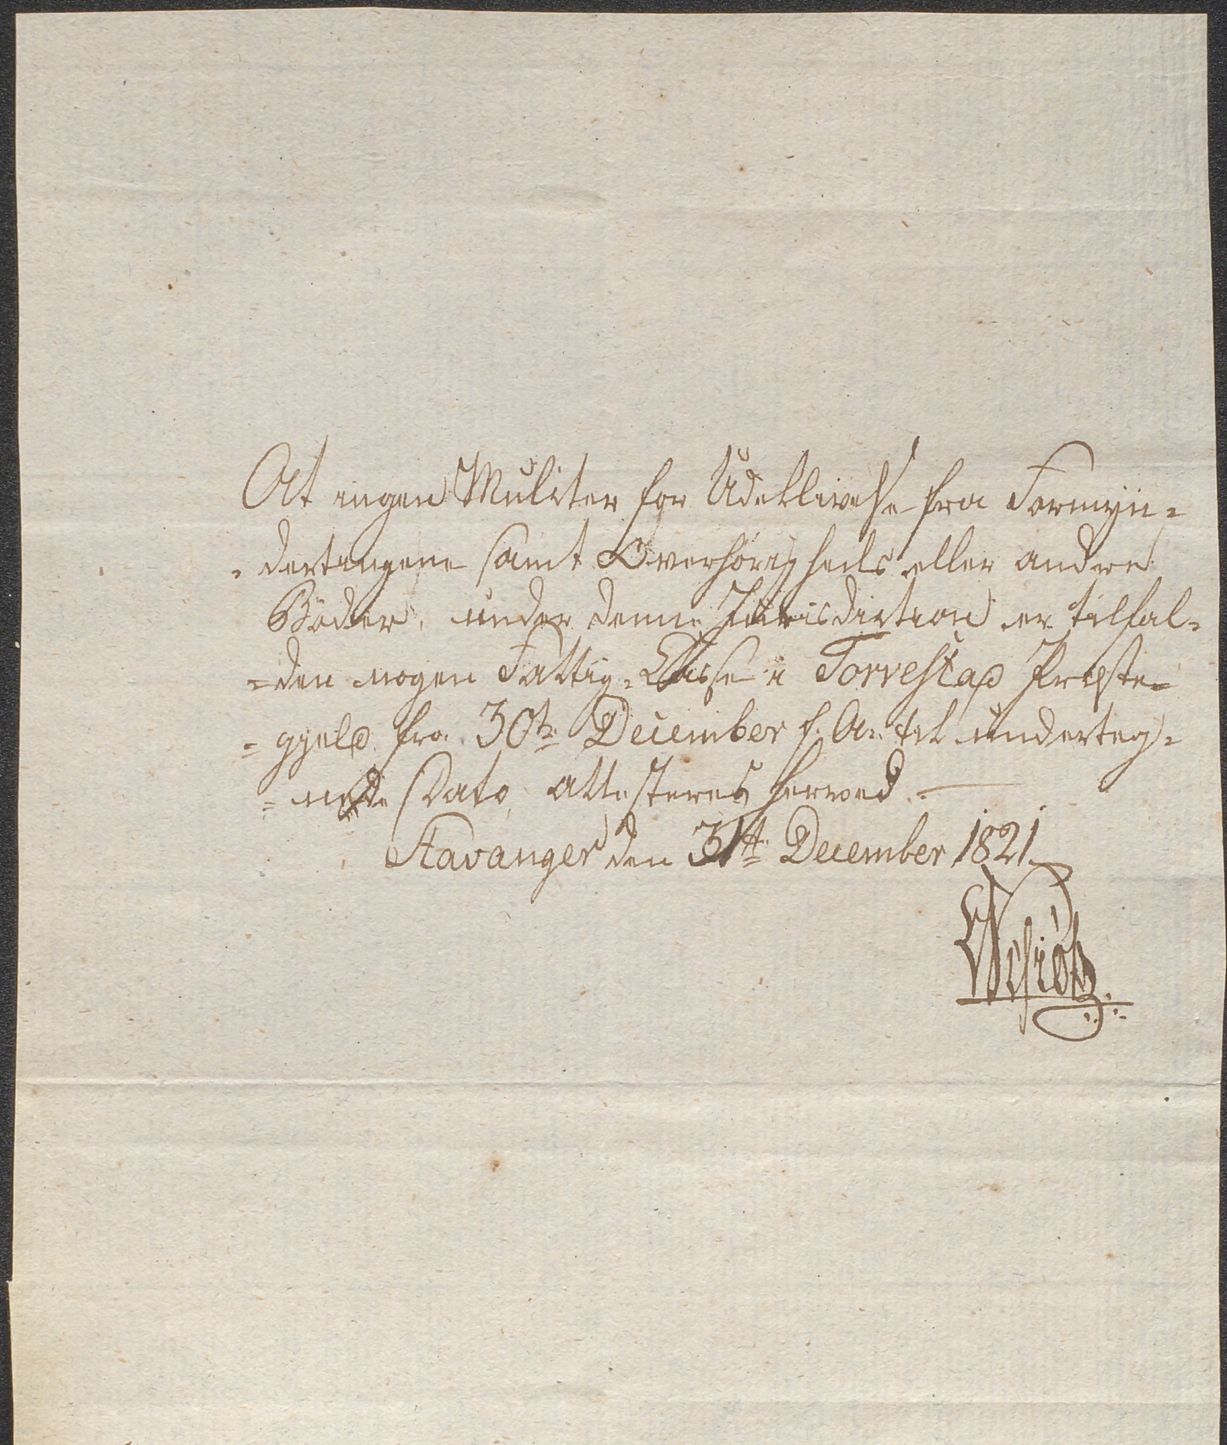 At ingen Mulcter for Udeblivelse fra Formyn=
=dertingene samt Overhørigheds eller andre
Bøder, under denne Jurisdiction er tilfal=
=den nogen Fattig=Casse i Torvestad Præste=
=gjeld fra 30te December f. A. til underteg=
=nede Dato, attesteres herved. —
Stavanger den 31te December 1821
Schiøtz